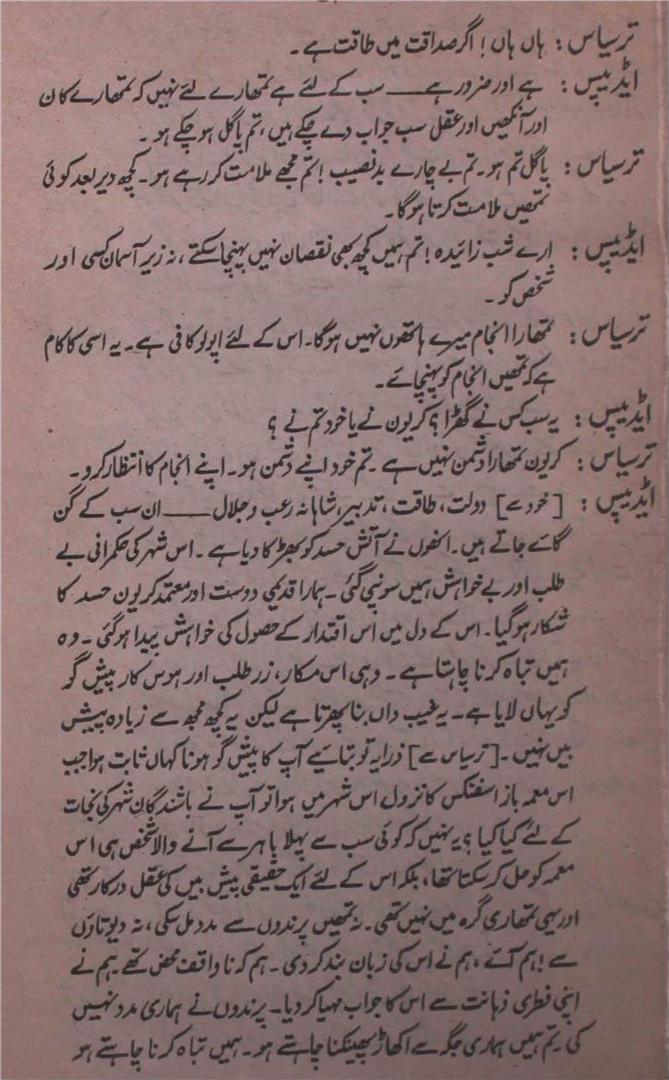 ترسیاس : ہاں ہاں ! اگر صداقت میں طاقت ہے ۔
ایڈیپس : ہے اور ضرور ہے ــــ سب کے لئے ہے تمھارے لئے نہیں کہ تمھارے کان
اور آنکھیں اور عقل سب جواب دے چکے ہیں ، تم پاگل ہو چکے ہو ۔
ترسیاس : پاگل تم ہو ۔ تم بے چارے بدنصیب ! تم مجھے ملامت کر رہے ہو ۔ کچھ دیر بعد کوئی
تمھیں ملامت کرتا ہوگا ۔
ایڈیپس : ارے شب زائیدہ ! تم ہمیں کچھ بھی نقصان نہیں پہنچا سکتے ، نہ زیر آسمان کسی اور
شخص کو ۔
ترسیاس : تمھارا انجام میرے ہاتھوں نہیں ہوگا ۔ اس کے لئے اپولو کافی ہے ۔ یہ اسی کا کام
ہے کہ تمھیں انجام کو پہنچائے ۔
ایڈیپس : یہ سب کس نے گھڑا ؟ کریون نے یا خود تم نے ؟
ترسیاس : کریون تمھارا دشمن نہیں ہے ۔ تم خود اپنے دشمن ہو ۔ اپنے انجام کا انتظار کرو ۔
ایڈیپس : [ خود سے ] دولت ، طاقت ، تدبیر ، شاہانہ رعب و جلال ــــ ان سب کے گن
گائے جاتے ہیں ۔ انھوں نے آتش حسد کو بھڑکا دیا ہے ۔ اس شہر کی حکمرانی بے
طلب اور بے خواہش ہمیں سونپی گئی ۔ ہمارا قدیمی دوست اور معتمد کریون حسد کا
شکار ہو گیا ۔ اس کے دل میں اس اقتدار کے حصول کی خواہش پیدا ہو گئی ۔ وہ
ہمیں تباہ کرنا چاہتا ہے ۔ وہی اس مکار ، زر طلب اور ہوس کار پیش گو
کو یہاں لایا ہے ۔ یہ غیب داں بنا پھرتا ہے لیکن یہ کچھ مجھ سے زیادہ پیش
بیں نہیں ۔ [ ترسیاس سے ] ذرا یہ تو بتائیے آپ کا پیش گو ہونا کہاں ثابت ہوا جب
اس معمہ باز اسفنکس کا نزول اس شہر میں ہوا تو آپ نے باشندگان شہر کی نجات
کے لئے کیا کیا ؟ یہ نہیں کہ کوئی سب سے پہلا باہر سے آنے والا شخص ہی اس
معمہ کو حل کر سکتا تھا ، بلکہ اس کے لئے ایک حقیقی پیش بیں کی عقل درکار تھی
اور یہی تمھاری گرہ میں نہیں تھی ۔ نہ تمھیں پرندوں سے مدد مل سکی ، نہ دیوتاؤں
سے ! ہم آئے ، ہم نے اس کی زبان بند کر دی ۔ ہم کہ ناواقف محض تھے ہم نے
اپنی فطری ذہانت سے اس کا جواب مہیا کر دیا ۔ پرندوں نے ہماری مدد نہیں
کی ۔ تم ہمیں ہماری جگہ سے اکھاڑ پھینکنا چاہتے ہو ۔ ہمیں تباہ کرنا چاہتے ہو